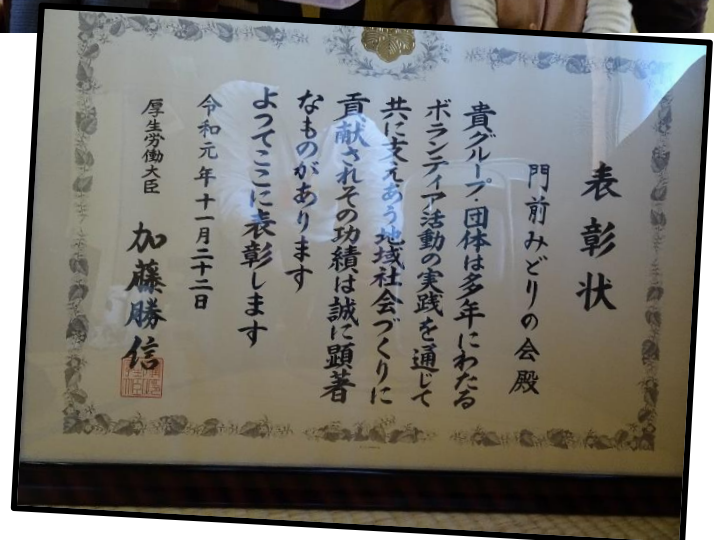 表彰状
門前みどりの会殿
貴グループ・団体は多年にわたる
ボランティア活動の実践を通じて
共に支えあう地域社会づくりに
貢献されその功績は誠に顕著
なものがあります
よってここに表彰します
令和元年十一月二十二日
厚生労働大臣 加藤勝信